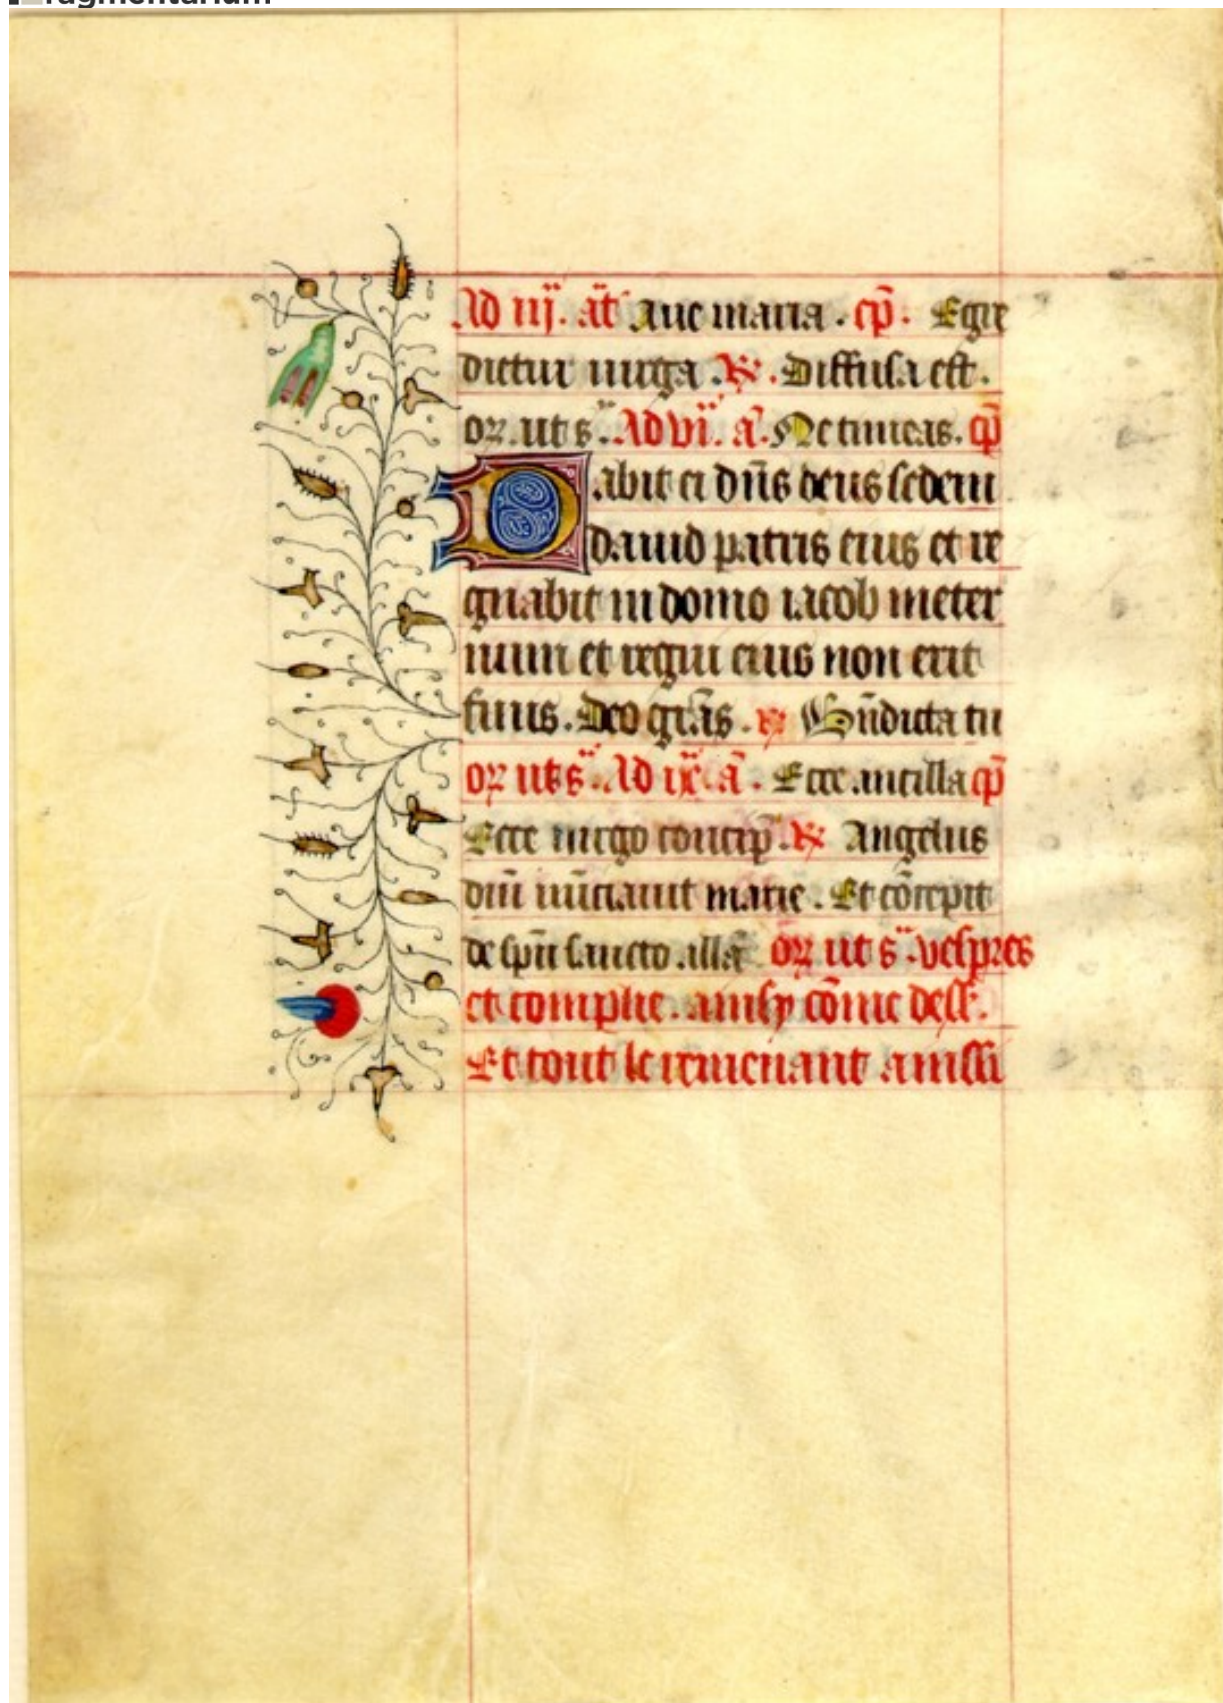 ragmentarium
Ad iij. añt Aue maria. cp̄. Egre
dietur uirga. ℟. Diffusa est.
or̃. ut s. Ad vi. a. Ne timeas. cp̄
Dabit ei dn̄s deus sedem
dauid patris eius et re
gnabit in domo iacob in eter
num et regni eius non erit
finis. Deo grās. ℟ Bn̄dicta tu
or̃ ut s. Ad ix. ā. Ecce ancilla cp̄
Ecce uirgo concip̄. ℟ Angelus
dn̄i nūciauit marie. Et cōcepit
de sp̄u sancto. all̄a or̃ ut s. vespres
et complie. ainsy cōme dess.
Et tout le remenant ainssi